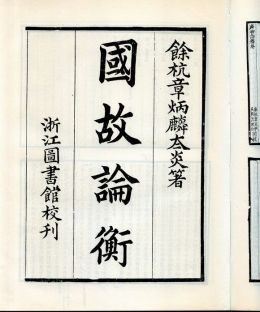 餘杭章炳麟太炎著
國故論衡
浙江圖書館校刊